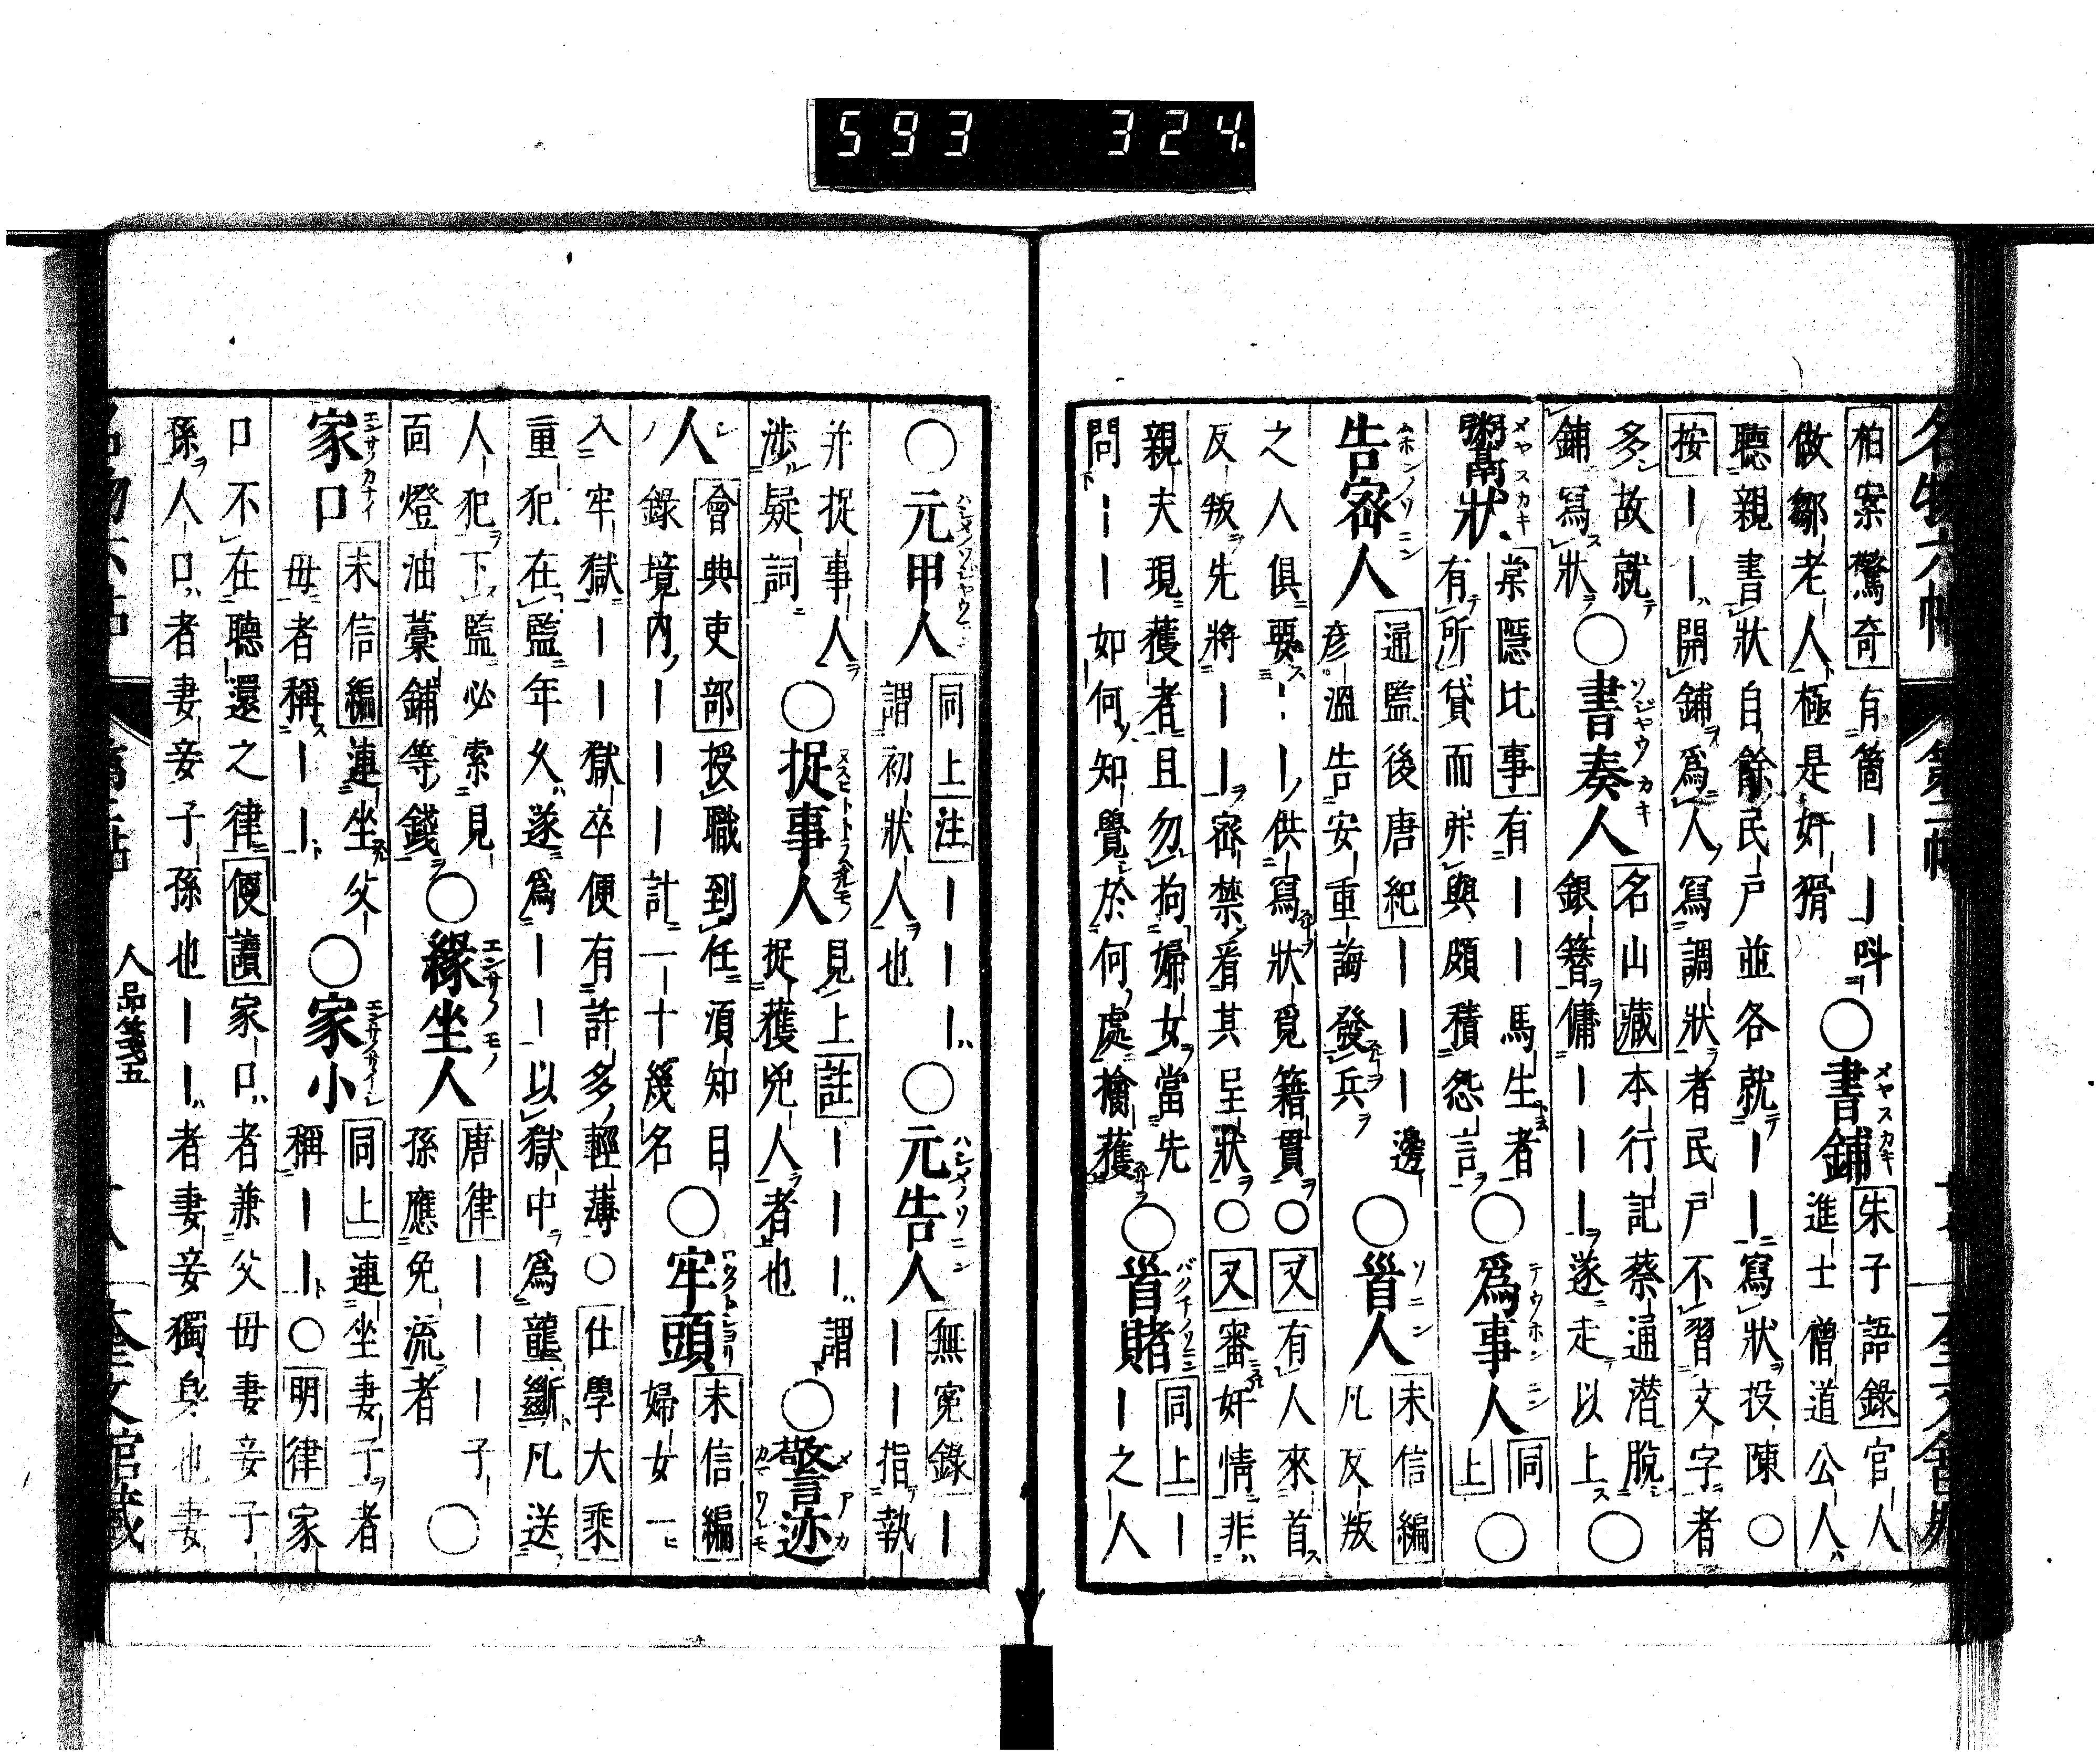 593 324
名物六帖 第二帖
柏案驚奇有箇——呌
做鄒老人極是奸猾
○書鋪
メヤスカキ
朱子語錄官人
進士僧道公人
聽親書狀自餘民戶並各就——寫狀投陳○
按——開鋪爲人寫調狀者民戶不習文字者
多故就
鋪寫狀
○書奏人
ソジヤウカキ
名山藏本行記蔡通潜脫
銀簪傭———遂走以上
○
鬻狀
メヤスカキ
棠隱比事有——馬生者
有所貸而 與頗積怨言
○爲事人
テウホンニン
同
上
○
告密人
ムホンノソニン
通監後唐紀———邊
彦溫告安重誨發兵
○首人
ソニン
未信編
凡反叛
之人俱要——供寫狀覓籍貫○又有人來首
反叛先將——密禁看其呈狀○又審奸情非
親夫現獲者且勿拘婦女當先
問——如何知覺於何處擒獲
○首賭
バクチノソニン
同上—
—之人
○元甲人
同上注———
謂初狀人也
○元告人
ハシメノソニン
無冤錄—
——指執
并捉事人
涉疑詞
○捉事人
見上註———謂
捉獲兇人者也
○警迹
人
會典吏部授職到任須知目
錄境內———計一十幾名
○牢頭
未信編
婦女一
入牢獄——獄卒便有許多輕薄○仕學大乘
重犯在監年久遂爲——以獄中爲壟斷凡送
人犯下監必索見
面燈油藁鋪等錢
○緣坐人
エンサノモノ
唐律———子
孫應免流者
○
家口
エンサカナイ
未信編連坐父
母者稱——
○家小
同上連坐妻子者
稱——○明律家
口不在聽還之律便讀家口者兼父母妻妾子
孫人口者妻妾子孫也——者妻妾獨身也妻
人品箋五
奎文館藏